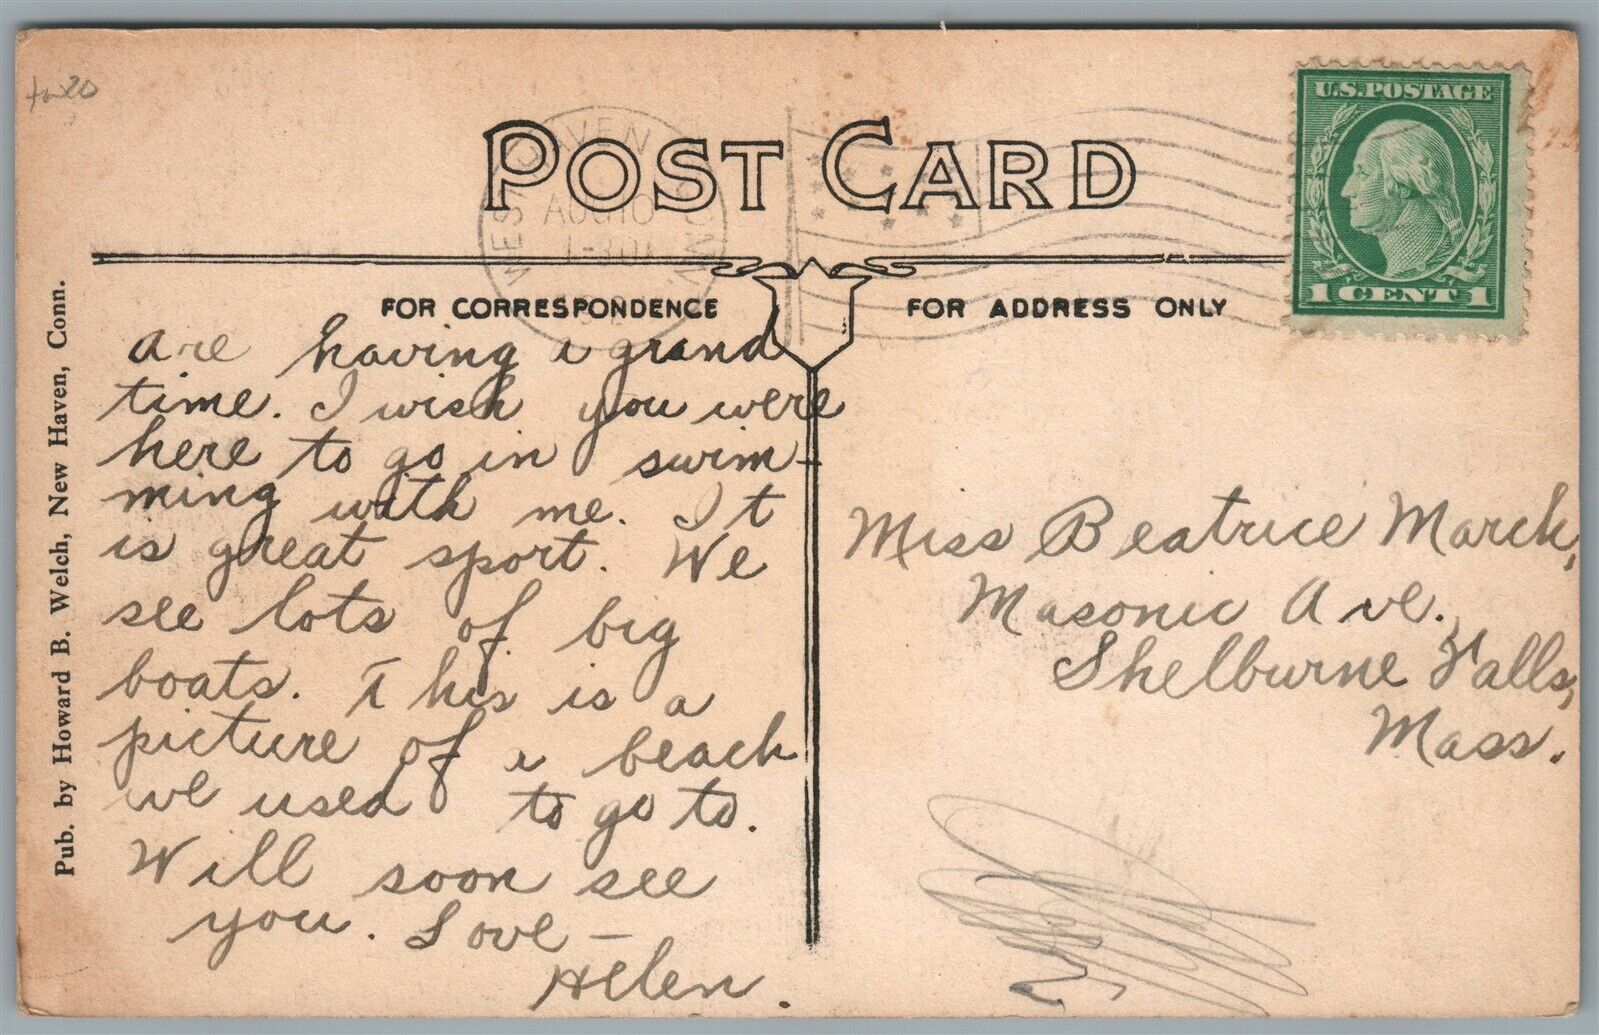 POST CARD
U.S. POSTAGE
1 CENT 1
WEST HAVEN
AUG 10
CONN
FOR CORRESPONDENCE
FOR ADDRESS ONLY
Pub. by Howard B. Welch, New Haven, Conn.
are having a grand
time. I wish you were
here to go in swim-
ming with me. It
is great sport. We
see lots of big
boats. This is a
picture of a beach
we used to go to.
Will soon see
you. Love –
Helen.
Miss Beatrice March,
Masonic Ave.,
Shelburne Falls,
Mass.